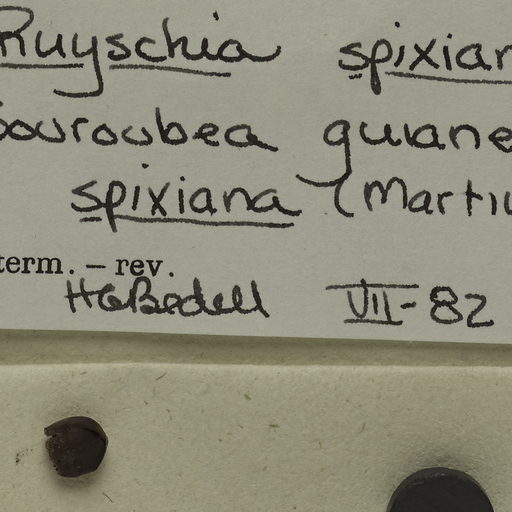 Ruyschia spixian
ouroubea guiane
spixiana (Martiu
term. – rev.
HGBedell VII-82